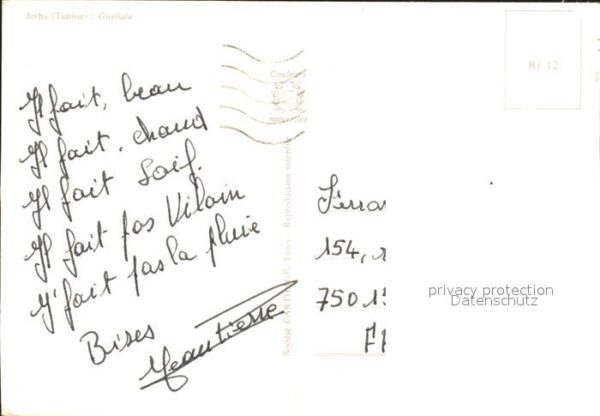 Jerba (Tunisie) : Guellala
Couleurs
naturelles
RJ 12
Il fait, beau
Il fait, chaud
Il fait Soif.
Il fait pas Vilain
Y' fait pas la pluie
Bises
Jean Pierre
Société CARTHAGE, Tunis - Reproduction interdite
154,
750 15
privacy protection
Datenschutz